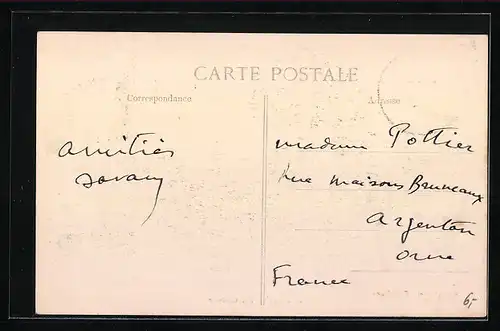 CARTE POSTALE
Correspondance
Adresse
amitiés
madame Pottier
rue maisons Bruneaux
Argentan
Orne
France
6,-